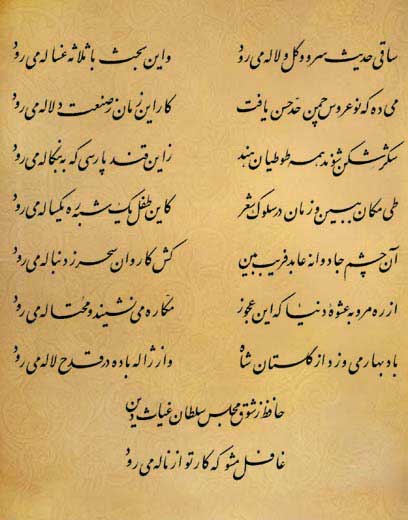 ساقی حدیث سرو و گل و لاله می رود واین بحث با ثلاثه غساله می رود
می ده که نوعروس چمن حد حسن یافت کار این زمان ز صنعت دلاله می رود
شکر شکن شوند همه طوطیان هند زاین قند پارسی که به بنگاله می رود
طی مکان ببین و زمان در سلوک شعر کاین طفل یک شبه ره یکساله می رود
آن چشم جادوانه عابد فریب بین کش کاروان سحر ز دنباله می رود
از ره مرو به عشوهٔ دنیا که این عجوز مکاره می نشیند و محتاله می رود
باد بهار می وزد از گلستان شاه واز ژاله باده در قدح لاله می رود
حافظ ز شوق مجلس سلطان غیاث دین
غافل مشو که کار تو از ناله می رود